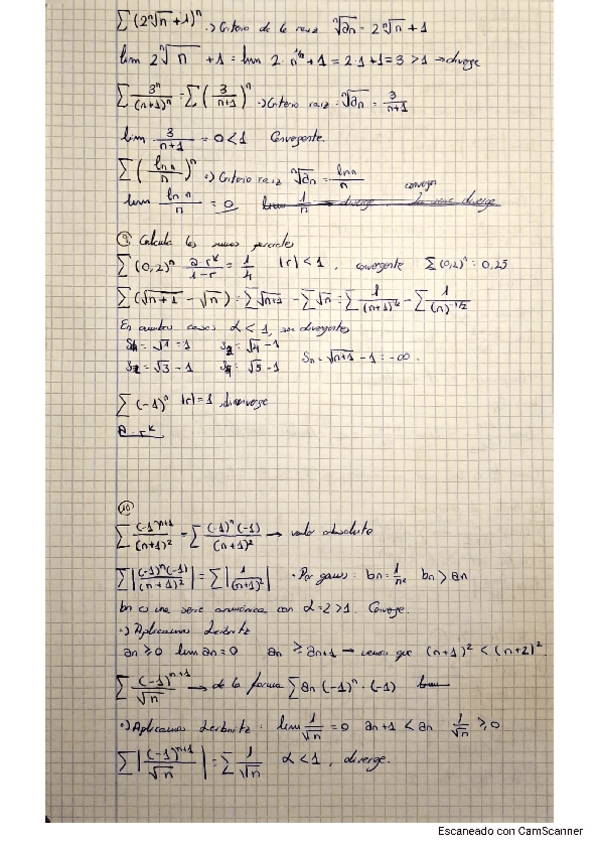 ∑(2ⁿ√n + 1)ⁿ .-> Criterio de la raiz ⁿ√an = 2ⁿ√n + 1
lim 2ⁿ√n + 1 = lim 2 · n^1/n + 1 = 2·1+1 = 3 > 1 -> diverge
∑ 3ⁿ/(n+1)ⁿ = ∑(3/(n+1))ⁿ .-> Criterio raiz: ⁿ√an = 3/(n+1)
lim 3/(n+1) = 0 < 1 Convergente.
∑(ln n/n)ⁿ .-> Criterio raiz ⁿ√an = ln n/n
converge
lim ln n/n = 0 lim 1/n -> diverge La serie diverge
⑨ Calcula las sumas parciales
∑(0,2)ⁿ a·r^k/(1-r) = 1/4 |r| < 1, convergente ∑(0,2)ⁿ = 0,25
∑(√n+1 - √n) = ∑√n+1 - ∑√n = ∑ 1/(n+1)^-1/2 - ∑ 1/(n)^-1/2
En ambos casos α < 1, son divergentes
S1 = √1 = 1 S3 = √4 - 1
S2 = √3 - 1 S4 = √5 - 1 Sn = √n+1 - 1 = -∞.
∑(-1)ⁿ |r| = 1 diverge
a · r^k
⑩
∑ (-1)^n+1/(n+1)² = ∑ (-1)ⁿ(-1)/(n+1)² -> valor absoluto
∑|(-1)ⁿ(-1)/(n+1)²| = ∑|1/(n+1)²| · Por gauss: bn = 1/n² bn > an
bn es una serie armónica con α = 2 > 1. Converge.
.-) Aplicamos Leibnitz
an ≥ 0 lim an = 0 an ≥ an+1 -> vemos que (n+1)² < (n+2)².
∑ (-1)^n+1/√n -> de la forma ∑ an (-1)ⁿ · (-1) lim
.-) Aplicamos Leibnitz: lim 1/√n = 0 an+1 < an 1/√n ≥ 0
∑|(-1)^n+1/√n| = ∑ 1/√n α < 1, diverge.
Escaneado con CamScanner